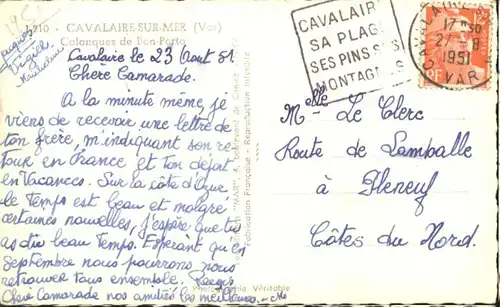 1210 - CAVALAIRE-SUR-MER (Var)
Calanques de Bon-Porto
Cavalaire le 23 Aout 51.
Chere Camarade.
A la minute même, je
viens de recevoir une lettre de
ton frère, m'indiquant son re-
tour en France et ton départ
en Vacances. Sur la côte d'Azur
le Temps est beau et malgré
certaines nouvelles, j'espère que tu
as du beau Temps. Espérant qu'en
Septembre nous pourrons nous
retrouver tous ensemble. Reçois
Chere Camarade nos amitiés les meilleures. -
Photographie Véritable
Fabrication Française - Reproduction Interdite
CAVALAIRE
SA PLAGE
SES PINS SES
MONTAGNES
17 H
27 - 8
1951
VAR
Melle Le Clerc
Route de Lamballe
à Pleneuf
Côtes du Nord.